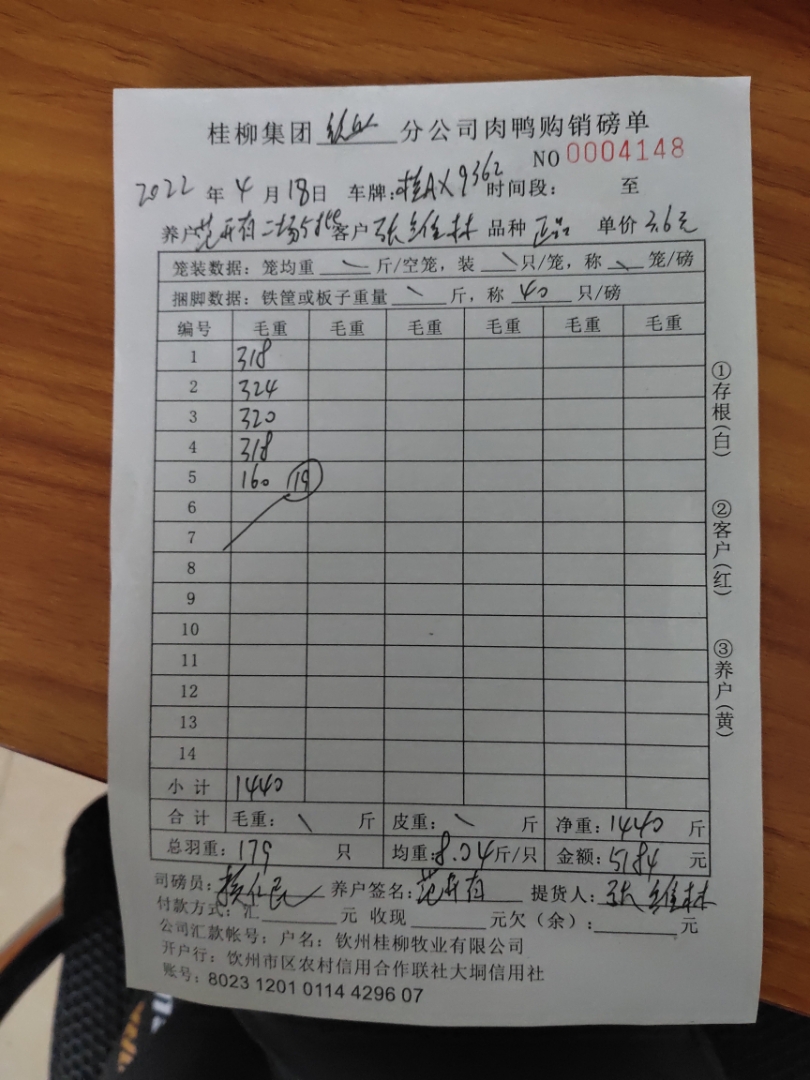 桂柳集团 钦州 分公司肉鸭购销磅单
NO 0004148
2022 年 4 月 18日 车牌:桂AX9362 时间段: 至
养户 范开有二场5批 客户 张维林 品种 正品 单价 3.6元
笼装数据: 笼均重 \ 斤/空笼, 装 \ 只/笼, 称 \ 笼/磅
捆脚数据: 铁筐或板子重量 \ 斤, 称 40 只/磅
编号 毛重 毛重 毛重 毛重 毛重 毛重
1 318
2 324
3 320
4 318
5 160 19
6
7
8
9
10
11
12
13
14
小计 1440
合计 毛重: \ 斤 皮重: \ 斤 净重: 1440 斤
总羽重: 179 只 均重: 8.04斤/只 金额: 5184 元
司磅员: 养户签名: 范开有 提货人: 张维林
付款方式: 汇 元 收现 元欠(余): 元
公司汇款帐号: 户名: 钦州桂柳牧业有限公司
开户行: 钦州市区农村信用合作联社大垌信用社
账号: 8023 1201 0114 4296 07
①存根(白)
②客户(红)
③养户(黄)